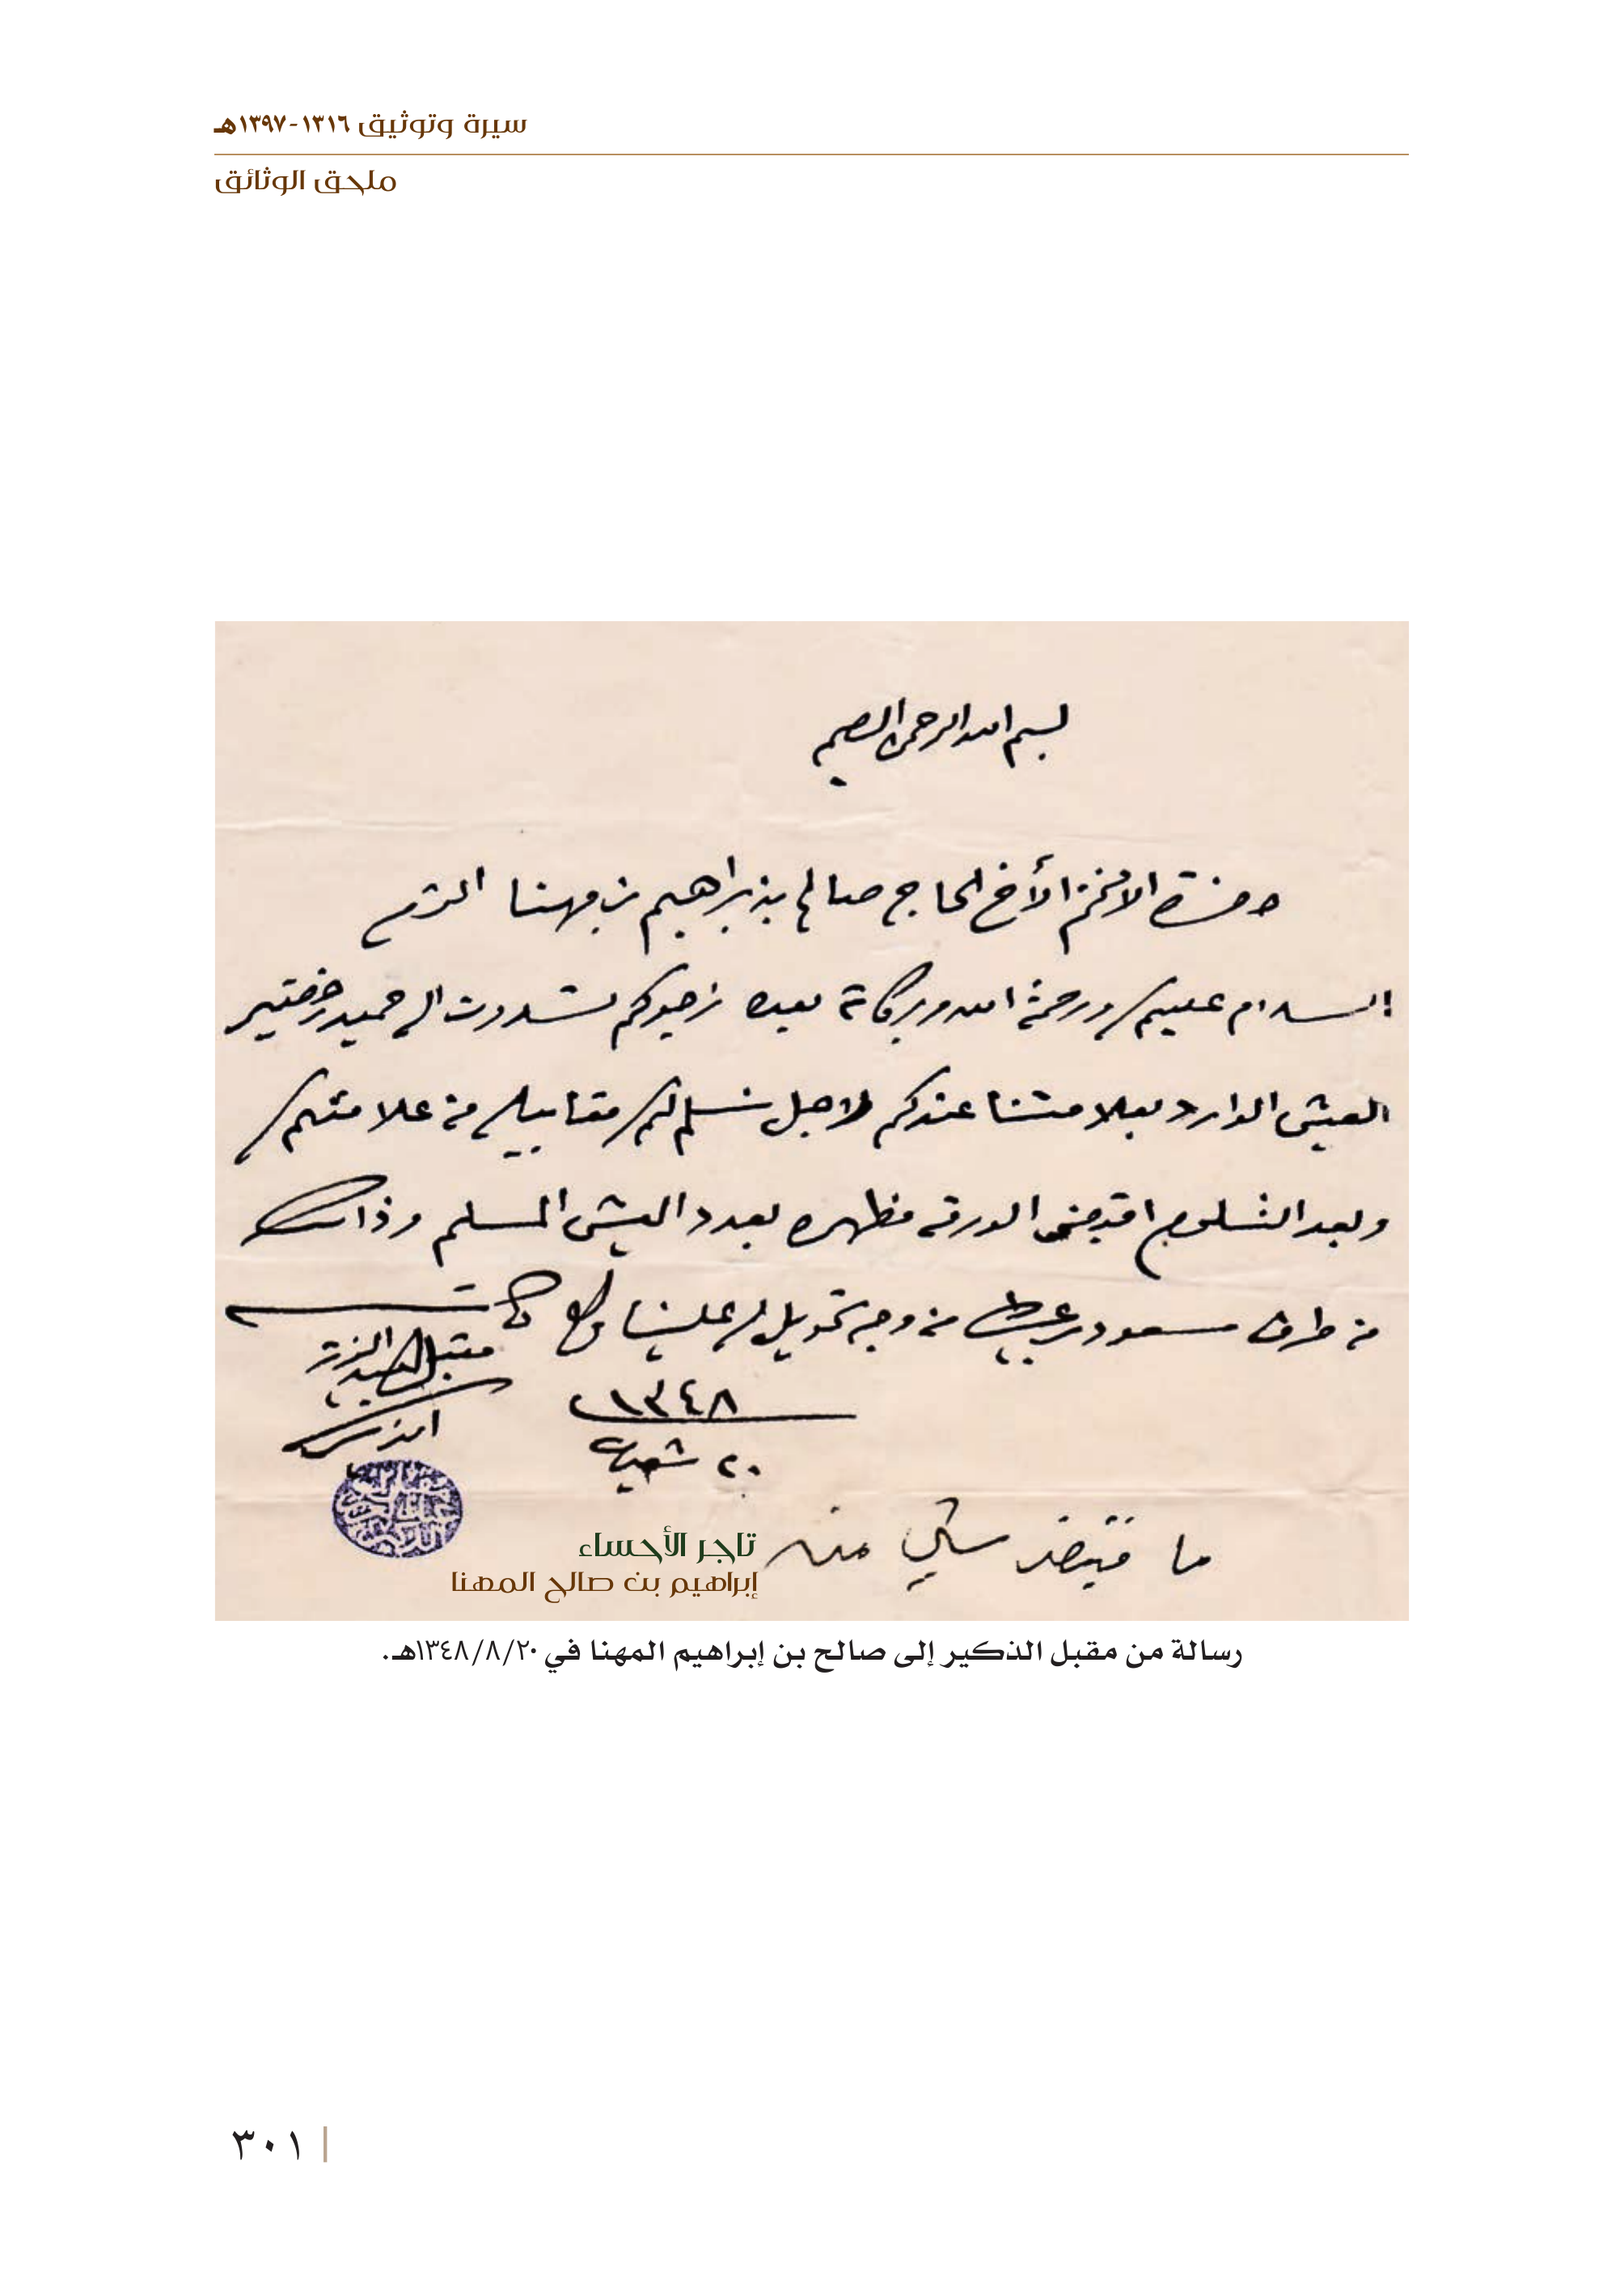 سيرة وتوثيق ١٣١٦-١٣٩٧هـ
ملحق الوثائق
بسم الله الرحمن الرحيم
حضرة الافخم الأخ الحاج صالح بن براهيم بن مهنا المحترم
السلام عليكم ورحمة الله وبركاته بعده نرجوكم
العيش الوارد بعلامتنا عندكم لاجل نسلم لكم مقابيله من علامتهم
وبعد التسلوم اقبضني الورقه مظهره بعدد العيش المسلم وذلك
من طرف مسعود من وجه تحويل علينا
مقبل العبد الرحمن
الذكير
١٣٤٨
٢٠ شعبان
ما قبض شي منه
تاجر الأحساء
إبراهيم بن صالح المهنا
رسالة من مقبل الذكير إلى صالح بن إبراهيم المهنا في ١٣٤٨/٨/٢٠هـ.
٣٠١